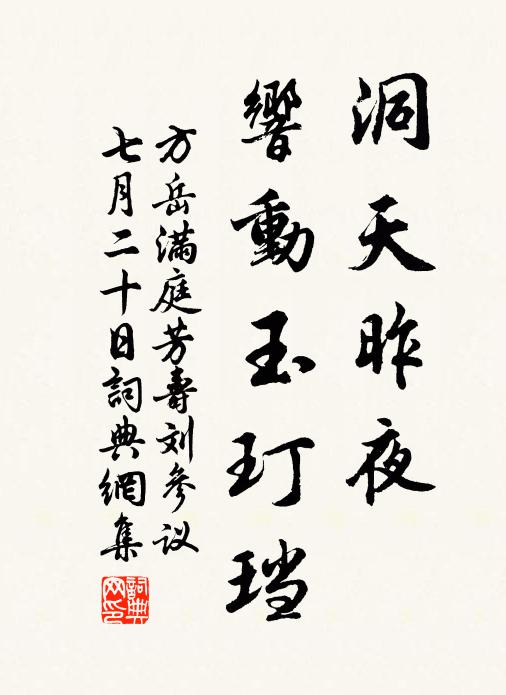 洞天昨夜
響動玉玎珰
方岳滿庭芳壽刘參议
七月二十日詞典網集
詞典网印